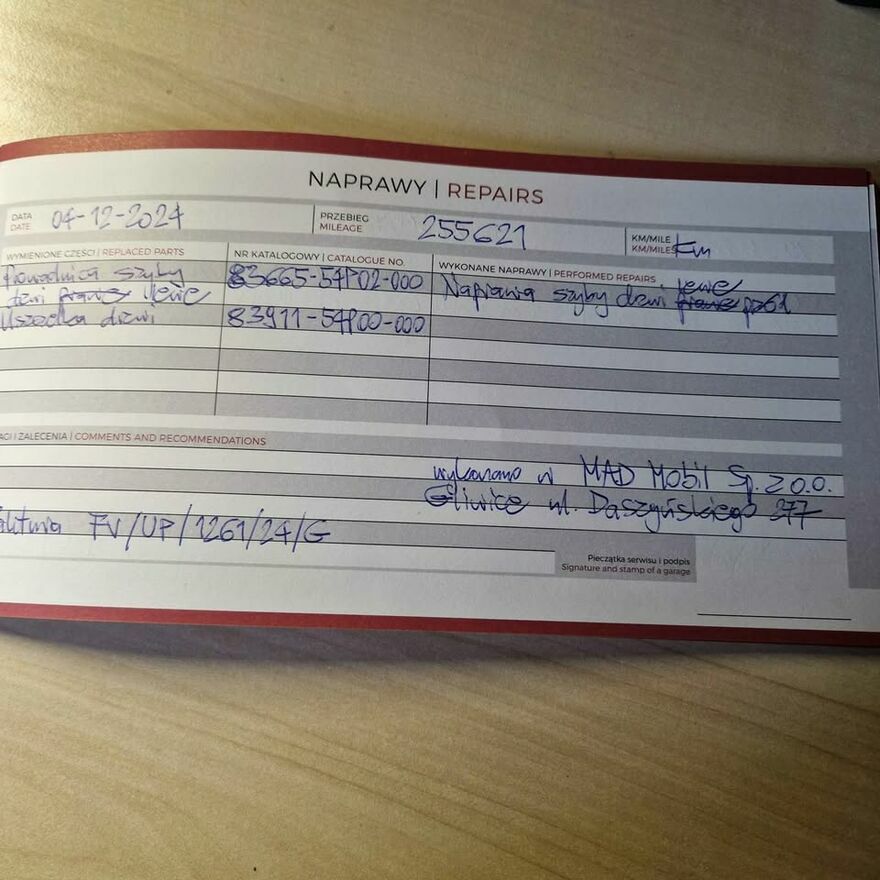 NAPRAWY | REPAIRS
DATA
DATE
04-12-2024
PRZEBIEG
MILEAGE
255621
KM/MILE
KM/MILES
km
WYMIENIONE CZĘŚCI | REPLACED PARTS
NR KATALOGOWY | CATALOGUE NO.
WYKONANE NAPRAWY | PERFORMED REPAIRS
Prowadnica szyby
83665-54P02-000
lewe
drzwi prawe lewe
Naprawa szyby drzwi prawe
Uszczelka drzwi
83911-54P00-000
AGI I ZALECENIA | COMMENTS AND RECOMMENDATIONS
wykonano w MAD Mobil Sp. z o.o.
Gliwice ul. Daszyńskiego 277
aktura FV/UP/1261/24/G
Pieczątka serwisu i podpis
Signature and stamp of a garage